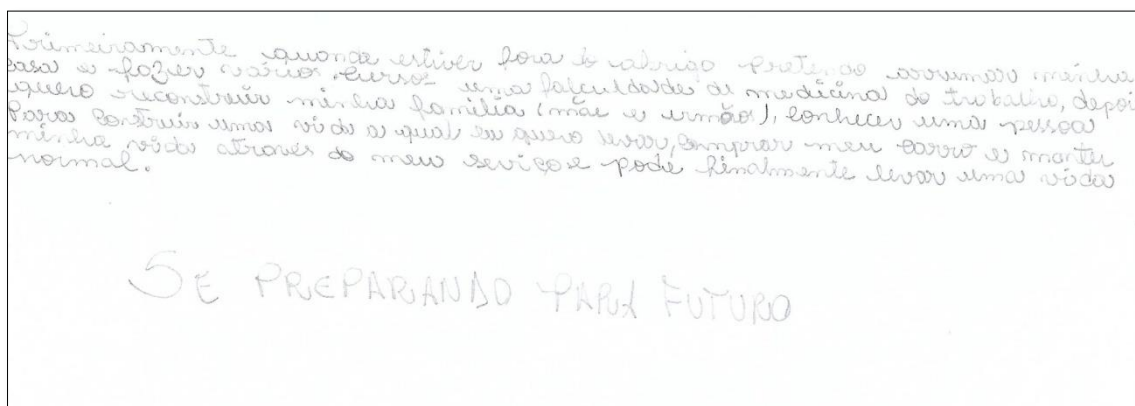 Primeiramente quando estiver fora do abrigo pretendo arrumar minha
casa e fazer vários cursos uma falculdade de medicina do trabalho, depoi
quero reconstruir minha família (mãe e irmão), conhecer uma pessoa
Para construir uma vida a qual eu quero levar, comprar meu carro e manter
minha vida através do meu seviço e pode finalmente levar uma vida
normal.
SE PREPARANDO PARA FUTURO